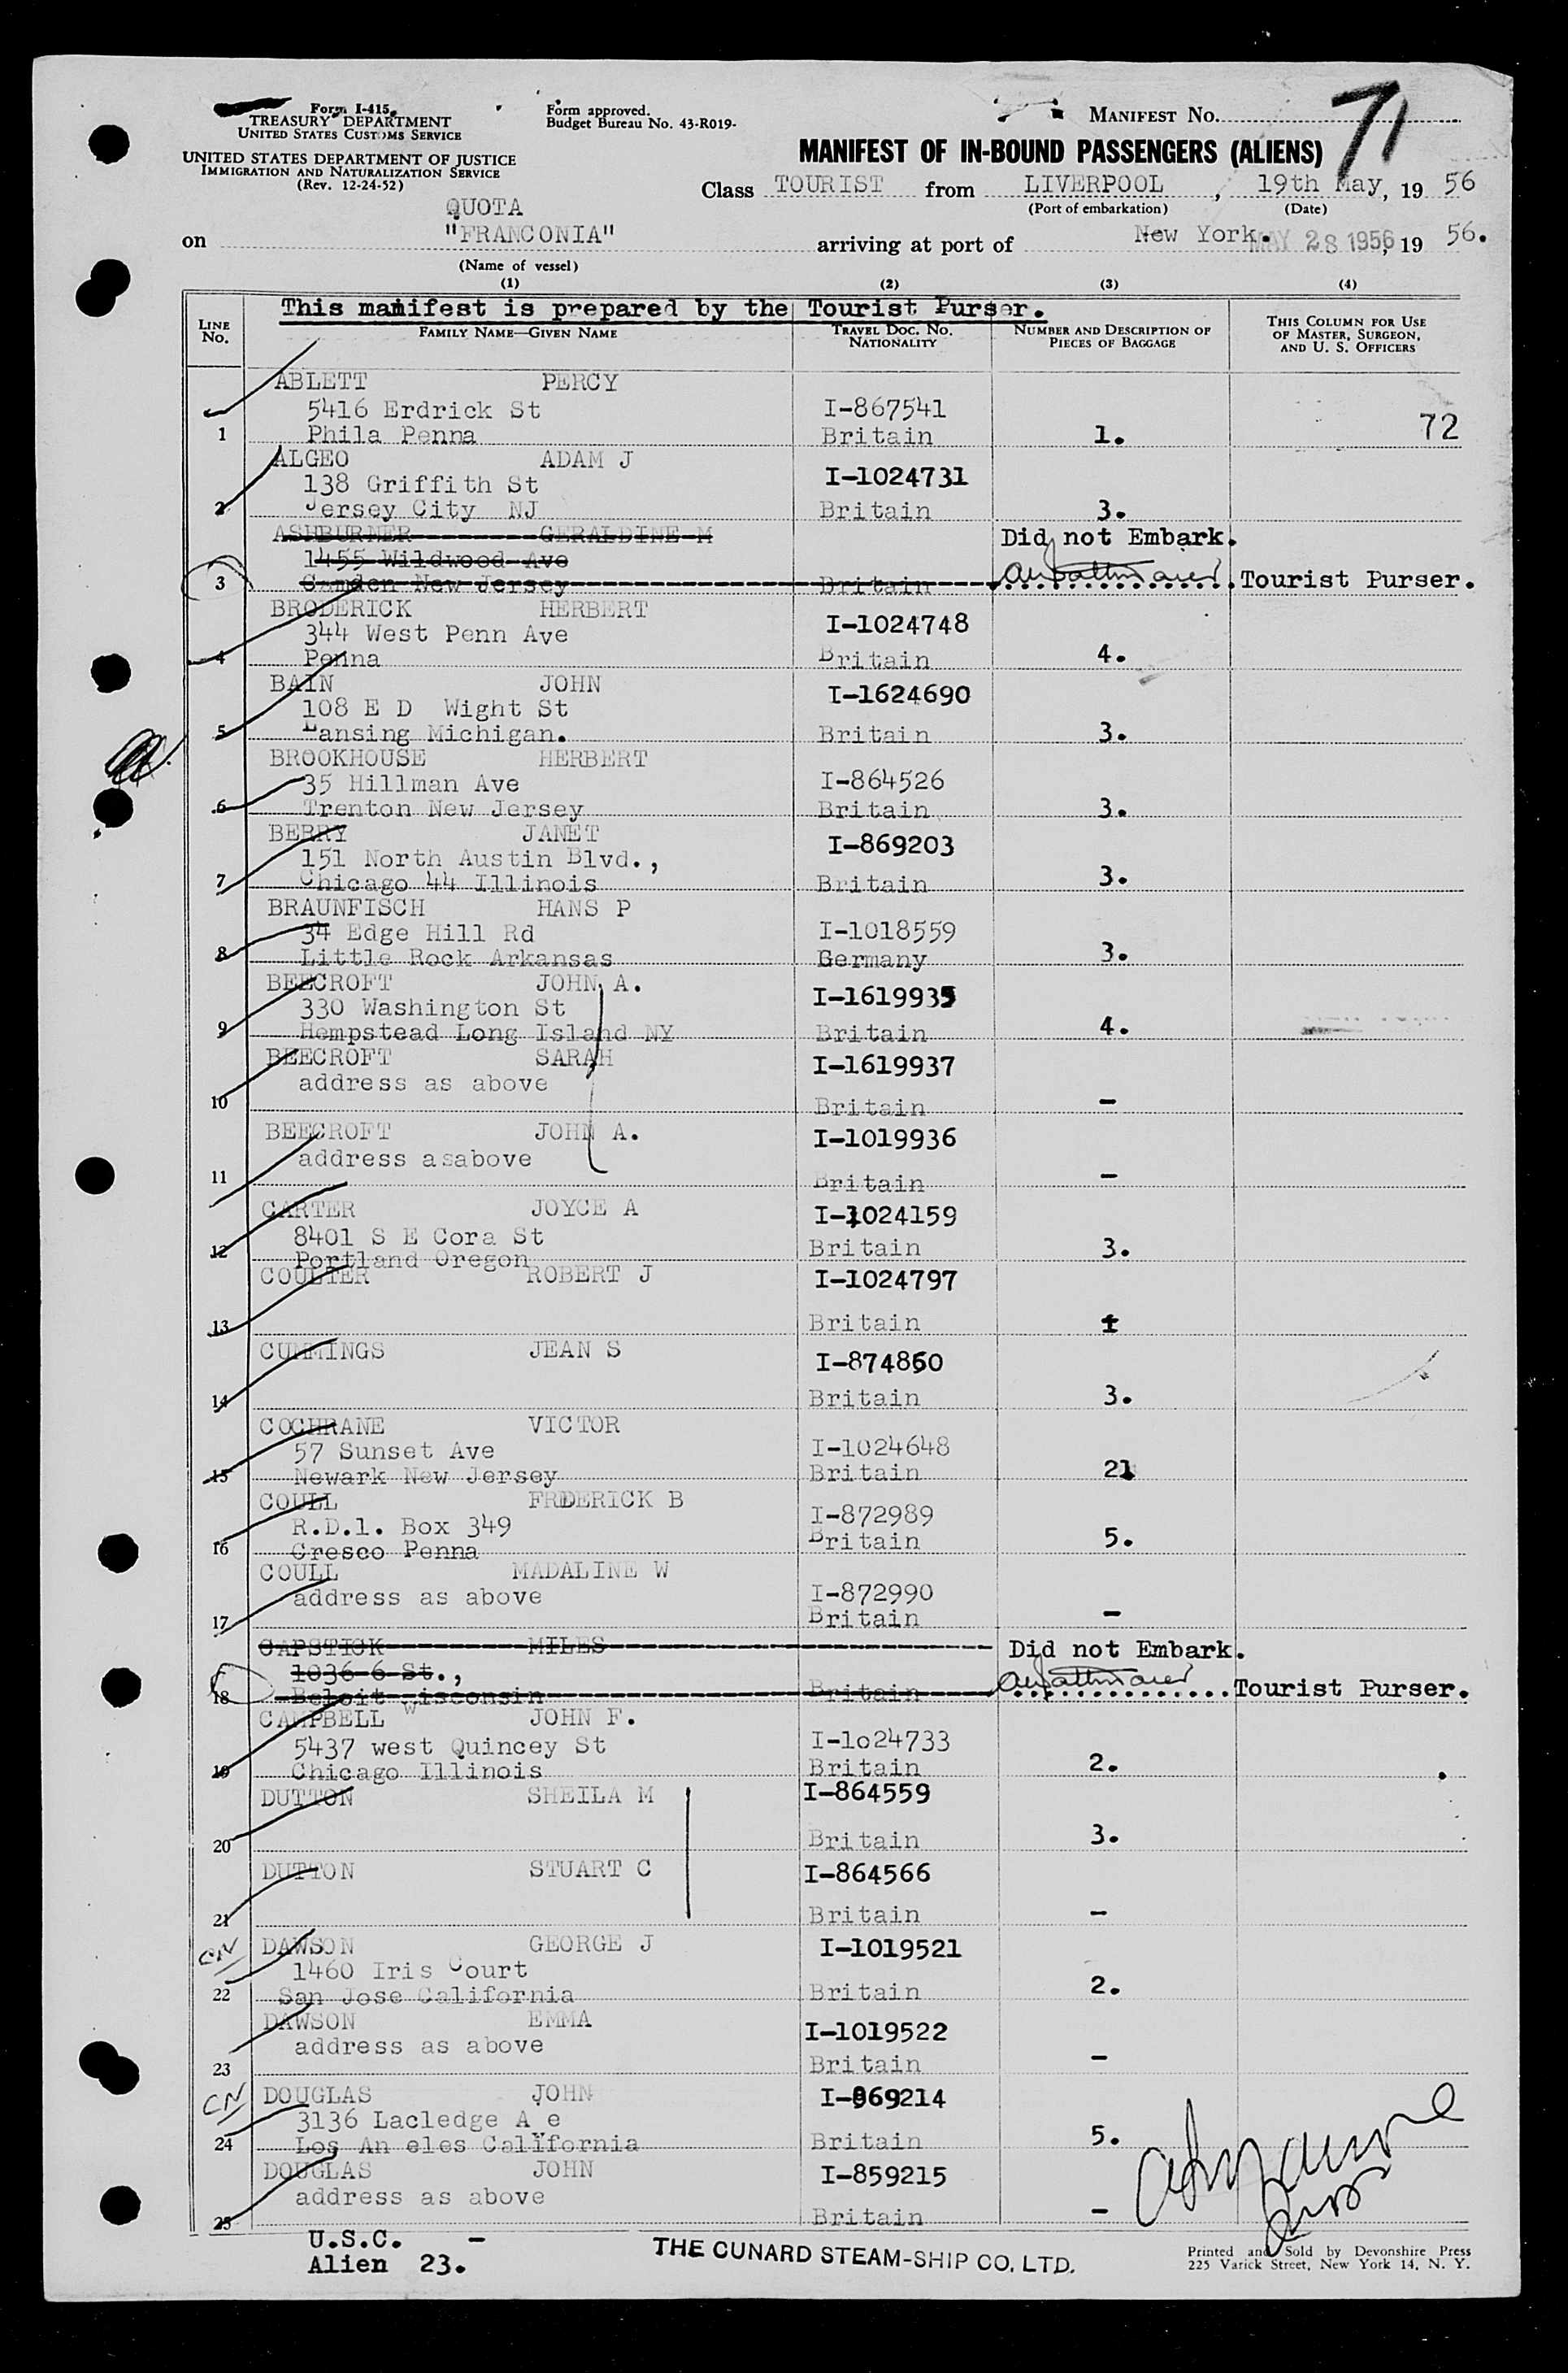 Form I-415
TREASURY DEPARTMENT
UNITED STATES CUSTOMS SERVICE
UNITED STATES DEPARTMENT OF JUSTICE
IMMIGRATION AND NATURALIZATION SERVICE
(Rev. 12-24-52)
Form approved.
Budget Bureau No. 43-R019-
MANIFEST NO. 71
MANIFEST OF IN-BOUND PASSENGERS (ALIENS)
Class TOURIST from LIVERPOOL, 19th May, 19 56
(Port of embarkation) (Date)
QUOTA
on "FRANCONIA" arriving at port of New York. MAY 28 1956, 19 56.
(Name of vessel)
(1) (2) (3) (4)
This manifest is prepared by the Tourist Purser.
LINE NO. FAMILY NAME—GIVEN NAME TRAVEL DOC. NO. NATIONALITY NUMBER AND DESCRIPTION OF PIECES OF BAGGAGE THIS COLUMN FOR USE OF MASTER, SURGEON, AND U. S. OFFICERS
ABLETT PERCY
5416 Erdrick St I-867541
1 Phila Penna Britain 1. 72
ALGEO ADAM J
138 Griffith St I-1024731
2 Jersey City NJ Britain 3.
ASHBURNER GERALDINE M Did not Embark.
1455 Wildwood Ave
3 Camden New Jersey Britain Tourist Purser.
BRODERICK HERBERT
344 West Penn Ave I-1024748
4 Penna Britain 4.
BAIN JOHN I-1624690
108 E D Wight St
5 Lansing Michigan. Britain 3.
BROOKHOUSE HERBERT
35 Hillman Ave I-864526
6 Trenton New Jersey Britain 3.
BERRY JANET I-869203
151 North Austin Blvd.,
7 Chicago 44 Illinois Britain 3.
BRAUNFISCH HANS P
34 Edge Hill Rd I-1018559
8 Little Rock Arkansas Germany 3.
BEECROFT JOHN A. I-1619935
330 Washington St
9 Hempstead Long Island NY Britain 4.
BEECROFT SARAH I-1619937
address as above
10 Britain –
BEECROFT JOHN A. I-1019936
address asabove
11 Britain –
CARTER JOYCE A I-1024159
8401 S E Cora St
12 Portland Oregon Britain 3.
COULTER ROBERT J I-1024797
13 Britain 1
CUMMINGS JEAN S I-874860
14 Britain 3.
COCHRANE VICTOR
57 Sunset Ave I-1024648
15 Newark New Jersey Britain 21
COULL FRDERICK B
R.D.1. Box 349 I-872989
16 Cresco Penna Britain 5.
COULL MADALINE W
address as above I-872990
17 Britain –
CAPSTICK MILES Did not Embark.
1036 6 St.,
18 Beloit Wisconsin Britain Tourist Purser.
CAMPBELL JOHN F.
5437 west Quincey St I-1o24733
19 Chicago Illinois Britain 2.
DUTTON SHEILA M I-864559
20 Britain 3.
DUTTON STUART C I-864566
21 Britain –
CN DAWSON GEORGE J I-1019521
1460 Iris Court
22 San Jose California Britain 2.
DAWSON EMMA I-1019522
address as above
23 Britain –
CN DOUGLAS JOHN I-869214
3136 Lacledge A e
24 Los An eles California Britain 5.
DOUGLAS JOHN I-859215
address as above
25 Britain –
U.S.C. –
Alien 23.
THE CUNARD STEAM-SHIP CO. LTD.
Printed and Sold by Devonshire Press
225 Varick Street, New York 14, N. Y.